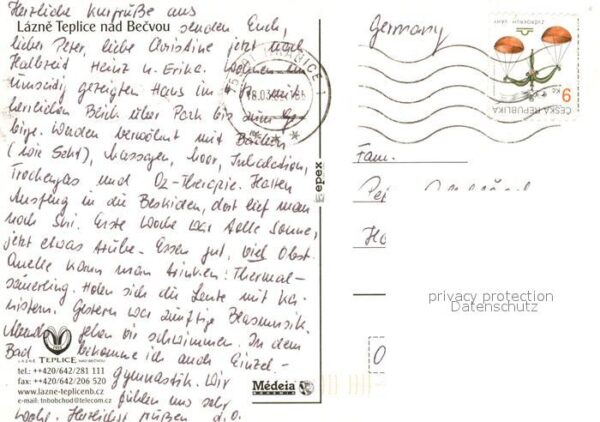 Herzliche Kurgrüße aus
Lázně Teplice nad Bečvou
senden Euch,
lieber Peter, liebe Christine jetzt nach
Halbzeit Heinz u. Erika. Wohnen im
umseitig gezeigten Haus im mit
herrlichen Blick über Park bis zum Ge-
birge. Werden verwöhnt mit Bädern
(wie Sekt), Massagen, Moor, Inhalation,
Trockengas und Oz-Therapie. Hatten
Ausflug in die Beskiden, dort lief man
noch Ski. Erste Woche war tolle Sonne,
jetzt etwas trübe. Essen gut, viel Obst.
Quelle kann man trinken: Thermal-
säuerling. Holen sich die Leute mit Ka-
nistern. Gestern war zünftige Blasmusik.
Abends gehen wir schwimmen. In dem
Bad bekomme ich auch Einzel-
gymnastik. Wir
fühlen uns sehr
wohl. Herzlichst grüßen d.O.
LÁZNĚ TEPLICE NAD BEČVOU
tel.: ++420/642/281 111
fax: ++420/642/206 520
www.lazne-teplicenb.cz
e-mail: tnbobchod@telecom.cz
epex
Médeia
BOHEMIA
HRANICE 1
Germany
ZVĚROKRUH
VÁHY
9 Kč
ČESKÁ REPUBLIKA
Fam.
Pe
Ho
privacy protection
Datenschutz